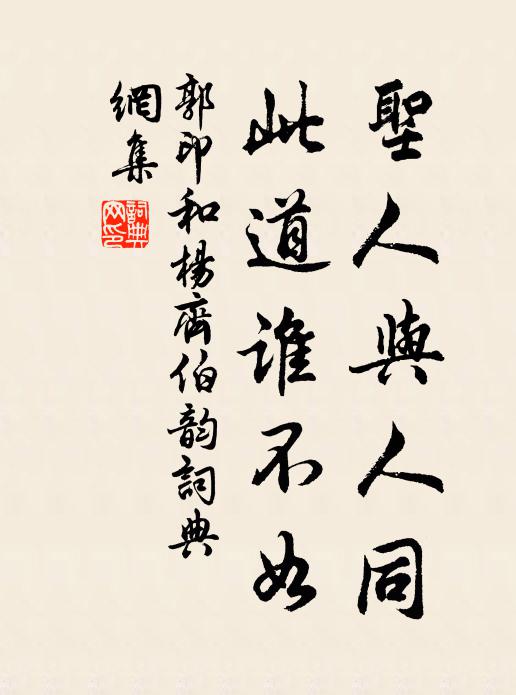 聖人與人同
此道誰不如
郭印和楊齊伯韵詞典
網集
詞典網印